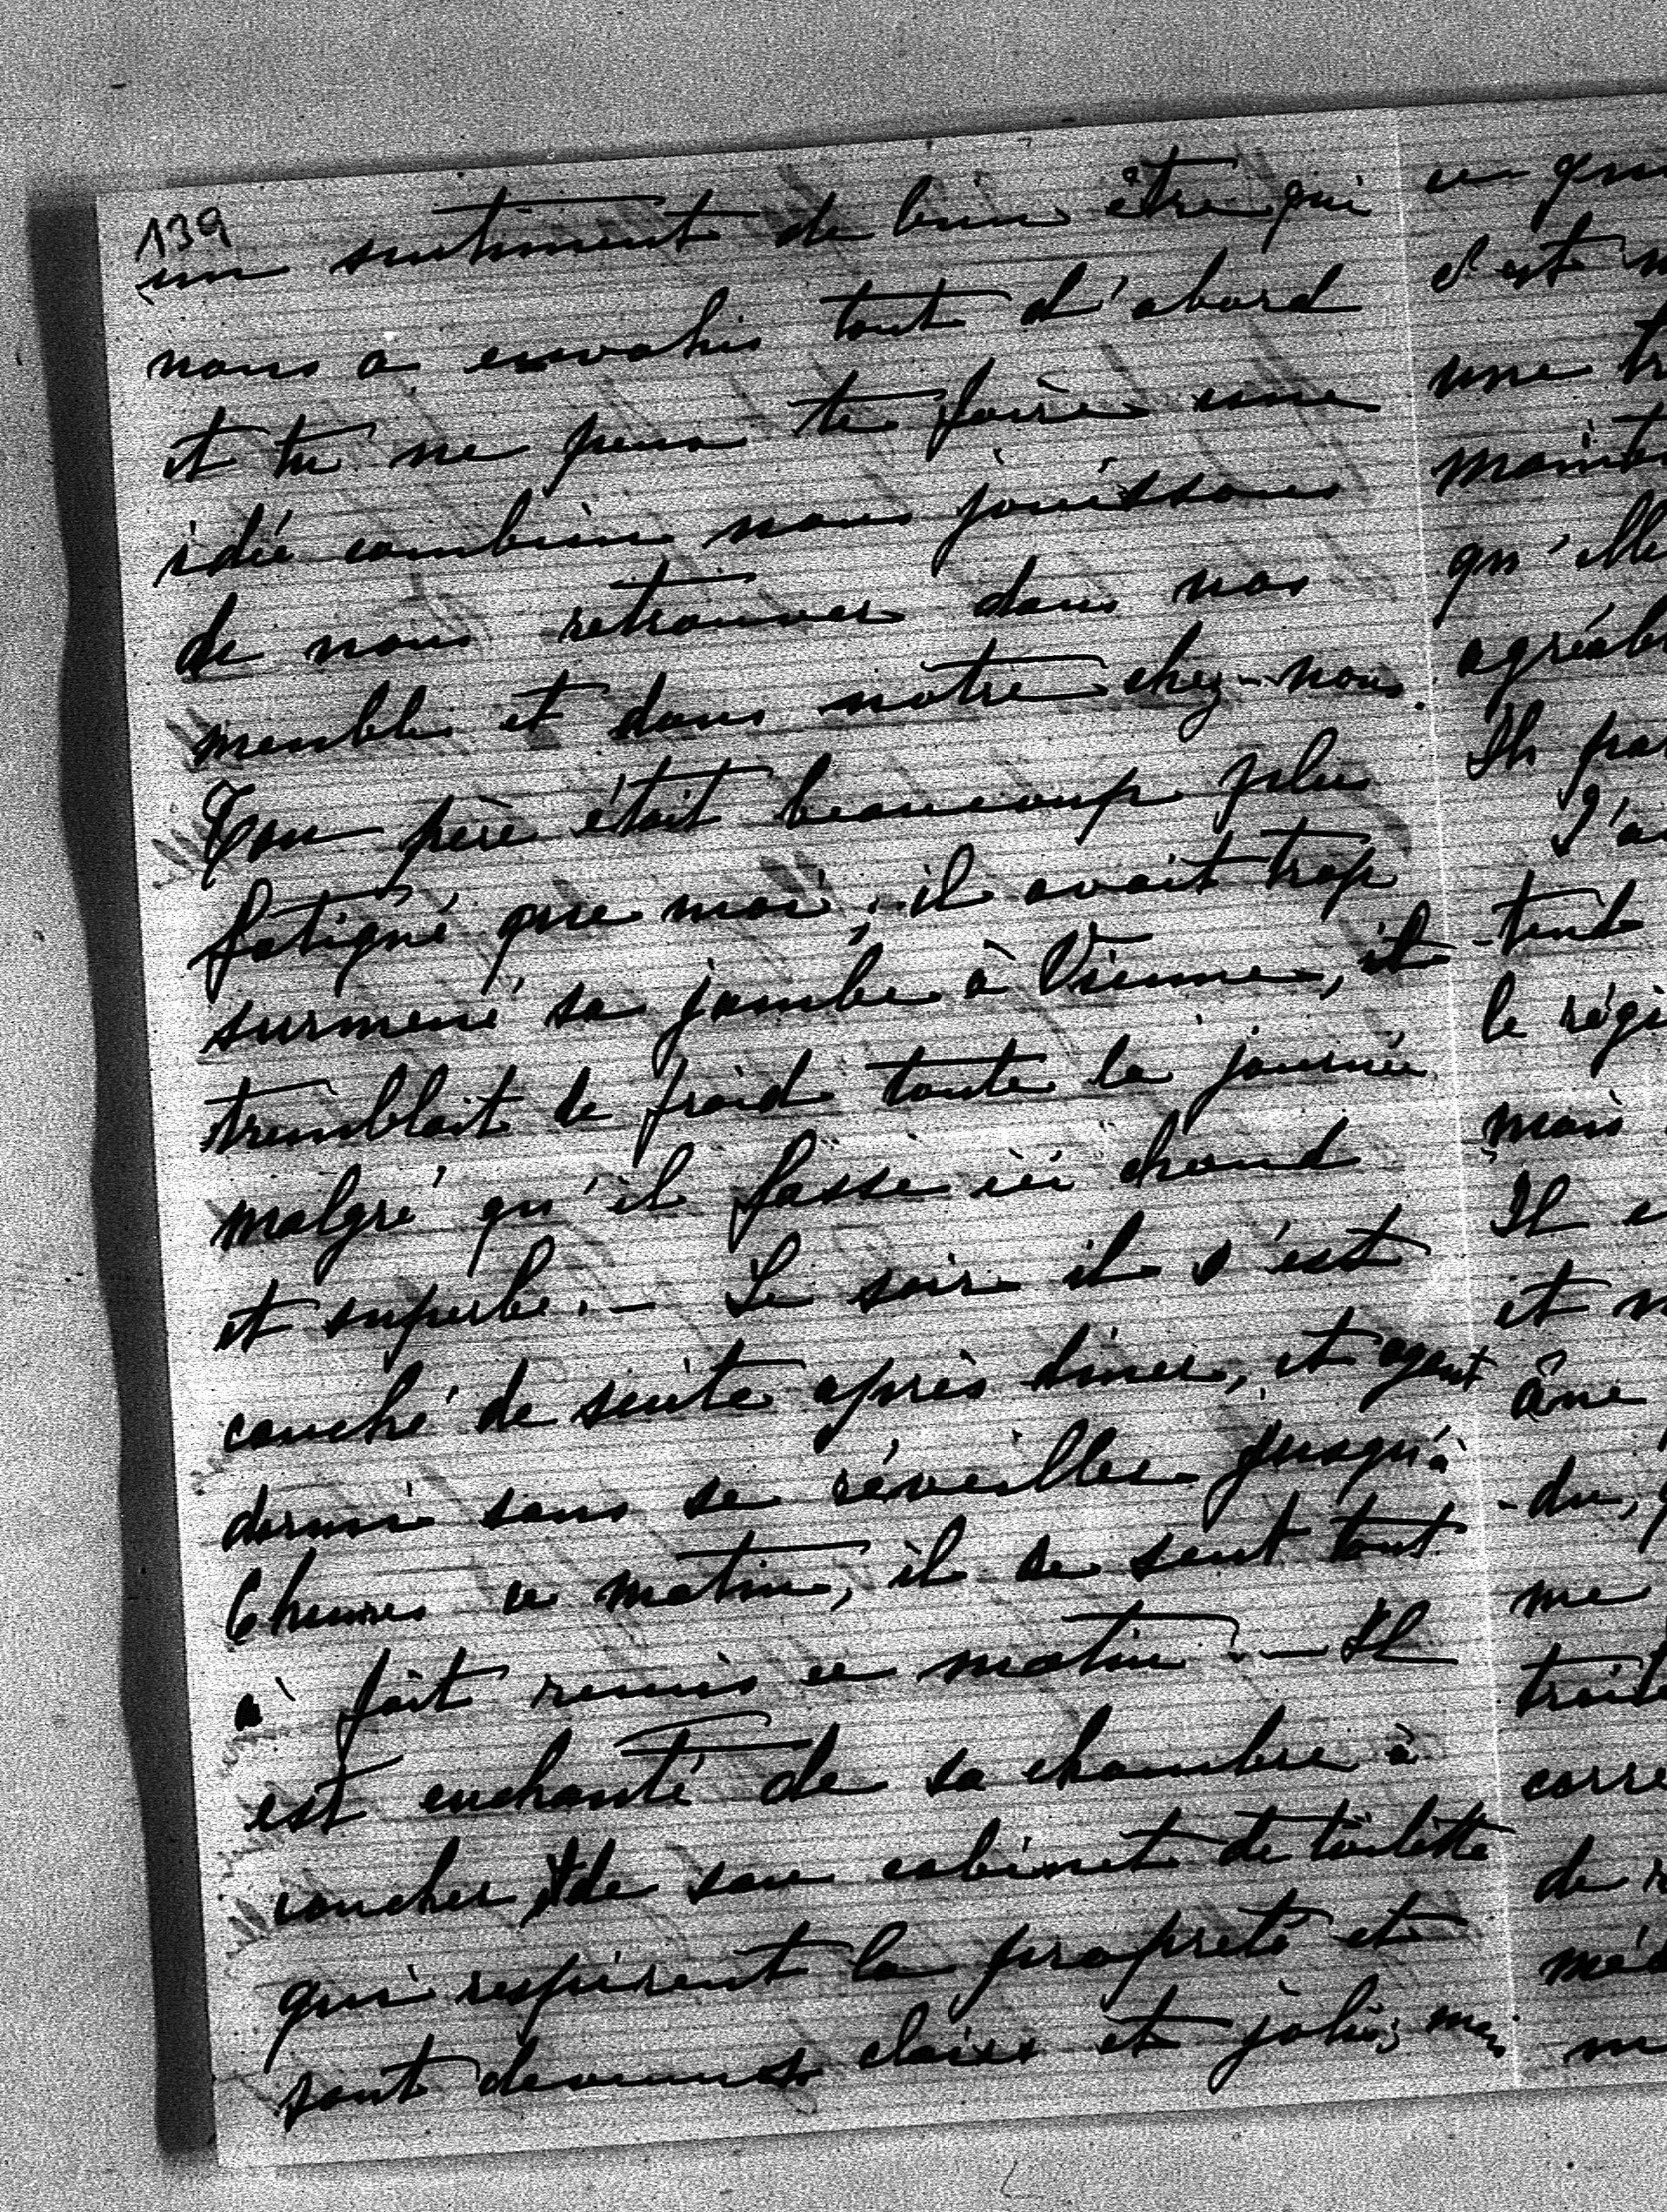 139
un sentiment de bien être qui
nous a envahis tout d'abord
et tu ne peux te faire une
idée combien nous jouissons
de nous retrouver dans nos
meubles et dans notre chez-nous.
Ton père était beaucoup plus
fatigué que moi, il avait trop
surmené sa jambe à Vienne, et
tremblait de froid toute la journée
malgré qu'il fasse ici chaud
et superbe. - Le soir il s'est
couché de suite après diner, et ayant
dormi sans se réveiller jusqu'à
6 heures ce matin, il se sent tout
à fait remis ce matin. - Il
est enchanté de sa chambre à
coucher et de son cabinet de toilette
qui respirent la propreté et
sont devenus clairs et jolis; moi
c'est
une
qu'elle
Il
le
mais
Il
et
âme
-du,
me
de